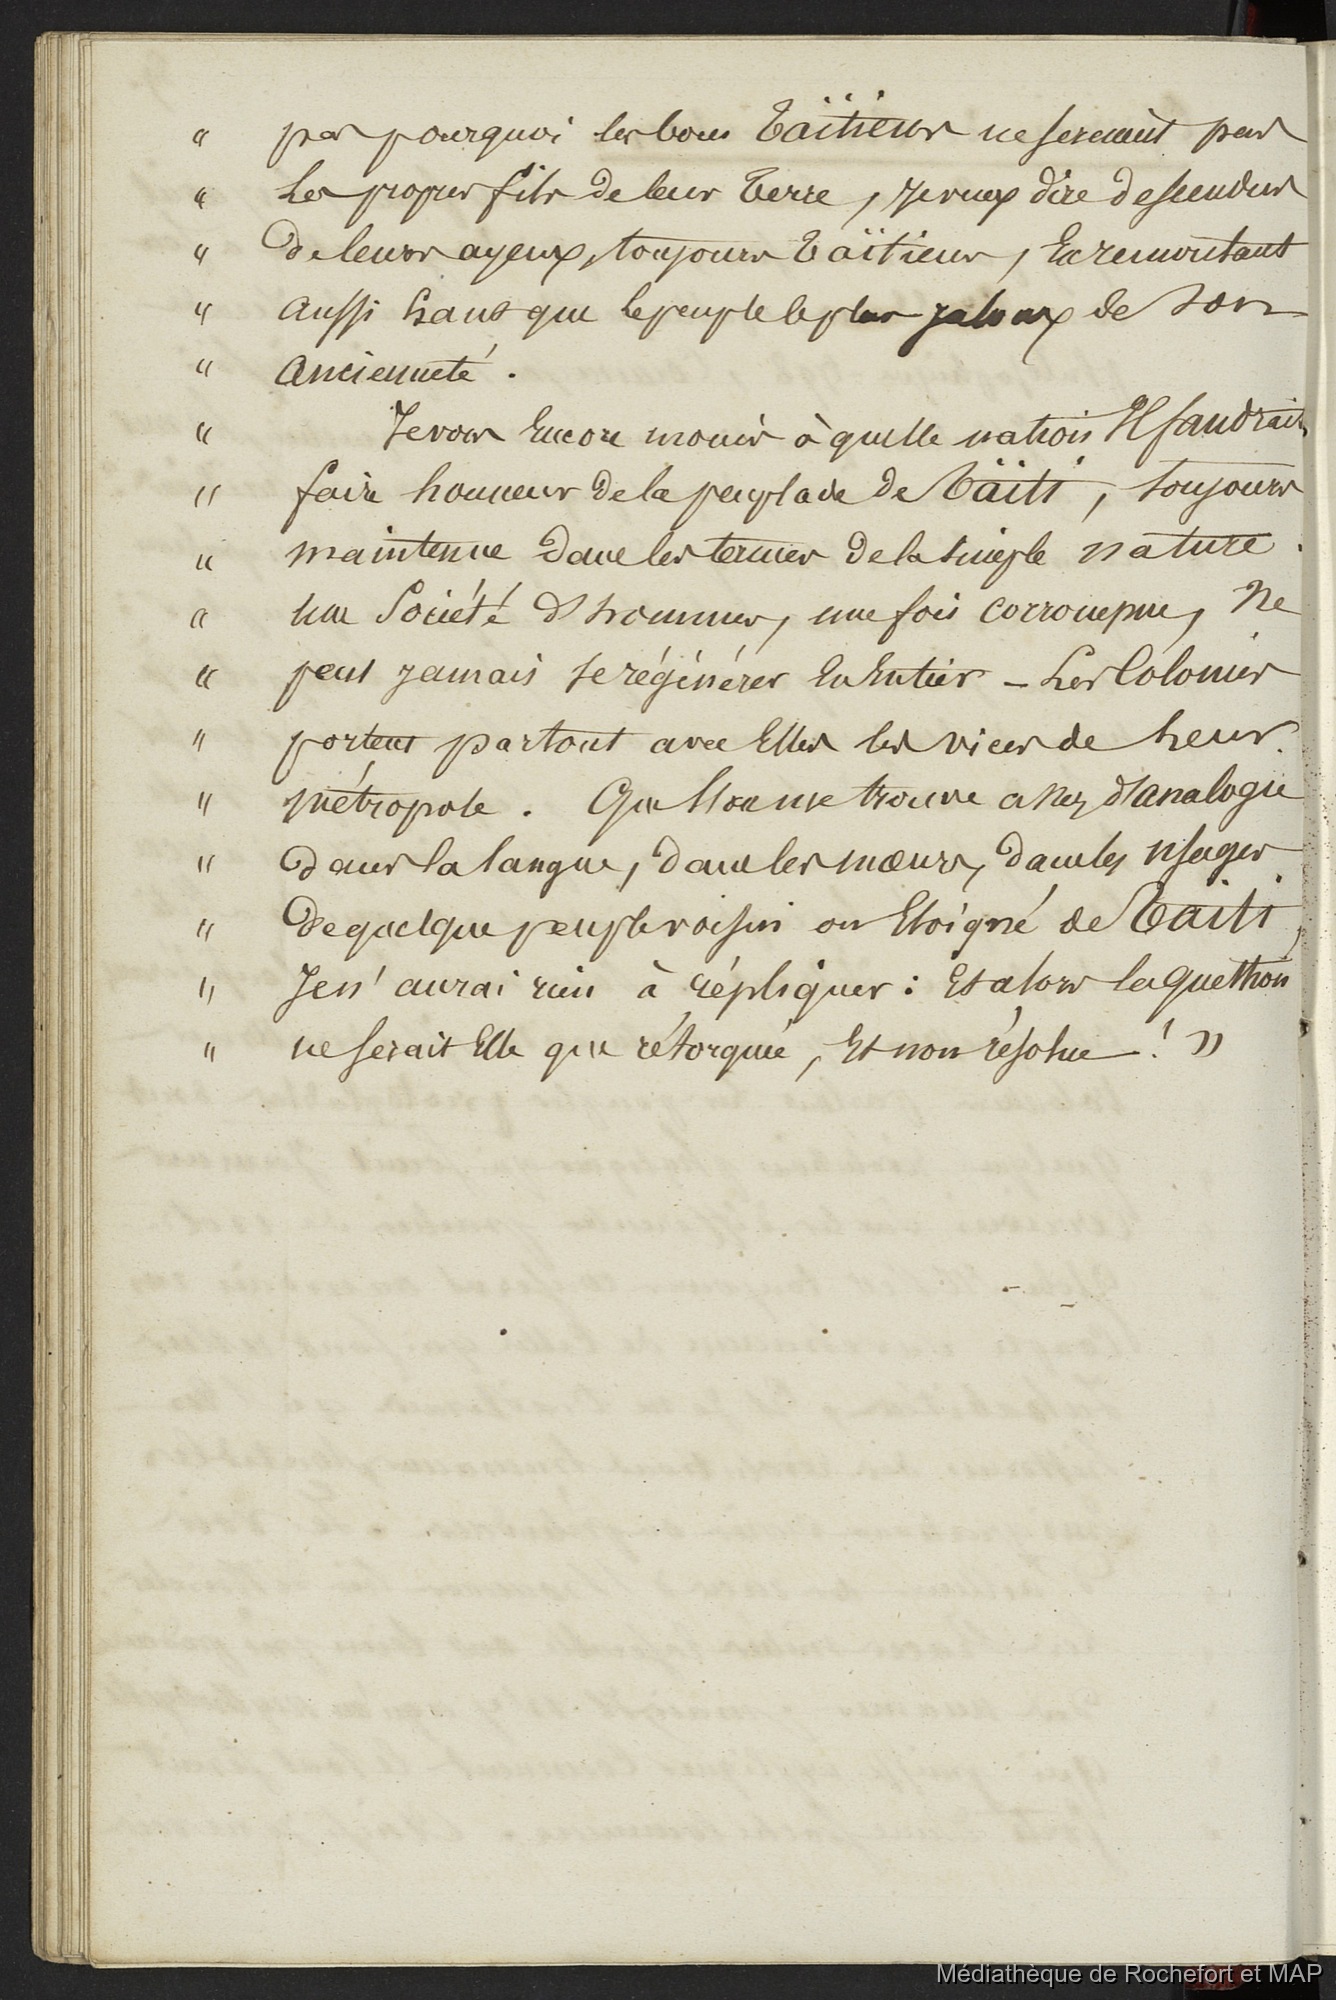 " pas pourquoi les bons Taïtiens ne seraient pas
" les propres fils de leur terre, je veux dire descendus
" de leurs ayeux, toujours Taïtiens, En remontant
" aussi haut que le peuple le plus jaloux de son
" ancienneté.
" Je vois Encore moins à quelle nation Il faudrait
" faire honneur de la peuplade de Taïti, toujours
" maintenue dans les termes de la simple nature.
" une Société d'hommes, une fois corrompue, Ne
" peut jamais se régénérer En Entier – Les Colonies
" portent partout avec Elles les vices de leur
" métropole. Que l'on me trouve assez d'analogie
" dans la langue, dans les mœurs, dans les usages
" de quelque peuple voisin ou Eloigné de Taïti,
" Je n'aurai rien à répliquer : Et alors la question
" ne serait Elle que rétorquée, Et non résolue ! "
Médiathèque de Rochefort et MAP